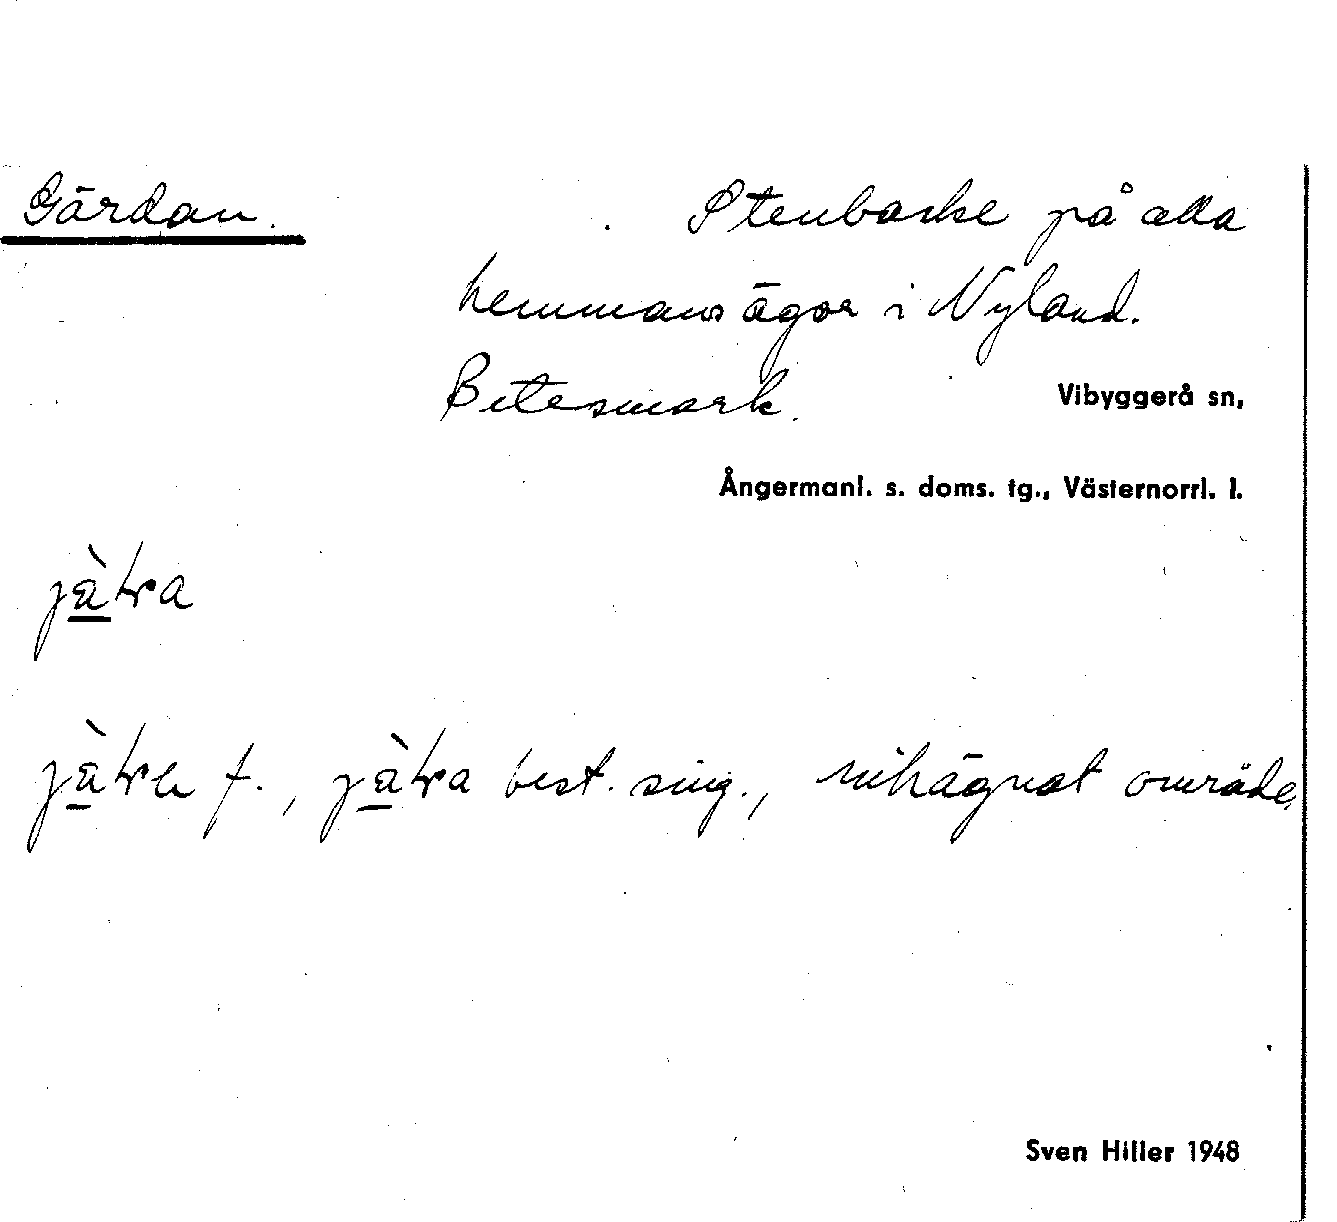 Gärdan.
Stenbacke på alla
hemmans ägor i Nyland.
Betesmark.
Vibyggerå sn,
Ångermanl. s. doms. tg., Västernorrl. l.
f., best. sing., inhägnat område,
Sven Hiller 1948